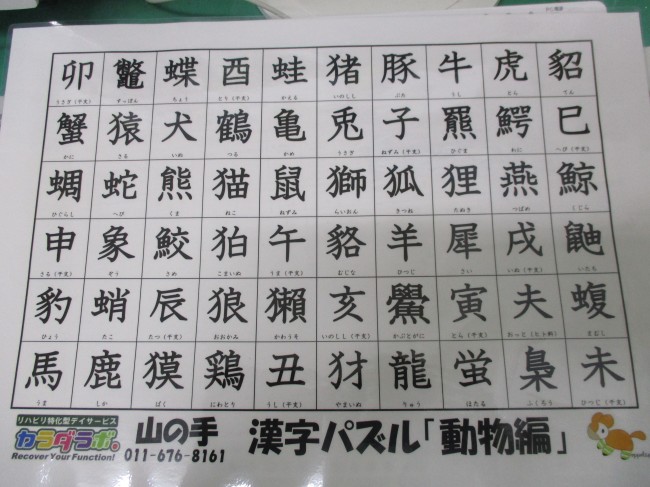 卯 鼈 蝶 酉 蛙 猪 豚 牛 虎 貂
うさぎ（干支） すっぽん ちょう とり（干支） かえる いのしし ぶた うし とら てん
蟹 猿 犬 鶴 亀 兎 子 羆 鰐 巳
かに さる いぬ つる かめ うさぎ ねずみ（干支） ひぐま わに へび（干支）
蜩 蛇 熊 猫 鼠 獅 狐 狸 燕 鯨
ひぐらし へび くま ねこ ねずみ らいおん きつね たぬき つばめ くじら
申 象 鮫 狛 午 貉 羊 犀 戌 鼬
さる（干支） ぞう さめ こまいぬ うま（干支） むじな ひつじ さい いぬ（干支） いたち
豹 蛸 辰 狼 獺 亥 鱟 寅 夫 蝮
ひょう たこ たつ（干支） おおかみ かわうそ いのしし（干支） かぶとがに とら（干支） おっと まむし
馬 鹿 獏 鶏 丑 犲 龍 蛍 梟 未
うま しか ばく にわとり うし（干支） やまいぬ りゅう ほたる ふくろう ひつじ（干支）
リハビリ特化型デイサービス
カラダラボ
Recover Your Function!
山の手
011-676-8161
漢字パズル「動物編」